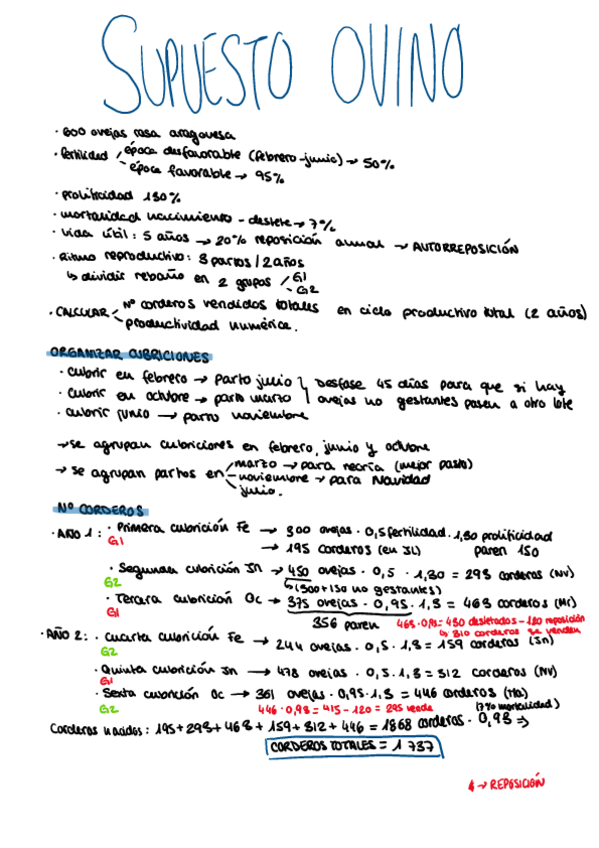 SUPUESTO OVINO
· 600 ovejas rasa aragonesa
· fertilidad época desfavorable (febrero-junio) → 50%
época favorable → 95%
· prolificidad 130%
· mortalidad nacimiento - destete → 7%
· vida útil: 5 años → 20% reposición anual → AUTORREPOSICIÓN
· Ritmo reproductivo: 3 partos / 2 años
↳ dividir rebaño en 2 grupos G1
G2
· CALCULAR Nº corderos vendidos totales en ciclo productivo total (2 años)
productividad numérica.
ORGANIZAR CUBRICIONES
· cubrir en febrero → parto julio
· cubrir en octubre → parto marzo
· cubrir junio → parto noviembre
Desfase 45 días para que si hay
ovejas no gestantes pasen a otro lote
→ se agrupan cubriciones en febrero, junio y octubre
→ se agrupan partos en marzo → para recría (mejor pasto)
noviembre → para Navidad
julio.
Nº CORDEROS
· AÑO 1: · Primera cubrición Fe → 300 ovejas · 0,5 fertilidad · 1,30 prolificidad
G1 → 195 corderos (en JL) paren 150
· Segunda cubrición Jn → 450 ovejas · 0,5 · 1,30 = 293 corderos (NV)
G2 ↳ (300+150 no gestantes)
· Tercera cubrición Oc → 375 ovejas · 0,95 · 1,3 = 463 corderos (Mr)
G1 356 paren 463 · 0,93 = 430 destetados - 120 reposición
↳ 310 corderos se venden
· AÑO 2: · Cuarta cubrición Fe → 244 ovejas · 0,5 · 1,3 = 159 corderos (Jn)
G2
· Quinta cubrición Jn → 478 ovejas · 0,5 · 1,3 = 312 corderos (NV)
G1
· Sexta cubrición Oc → 361 ovejas · 0,95 · 1,3 = 446 corderos (Ma)
G2 446 · 0,93 = 415 - 120 = 295 vende (7% mortalidad)
Corderos nacidos: 195 + 293 + 463 + 159 + 312 + 446 = 1868 corderos · 0,93 ⇒
CORDEROS TOTALES = 1 737
→ REPOSICIÓN